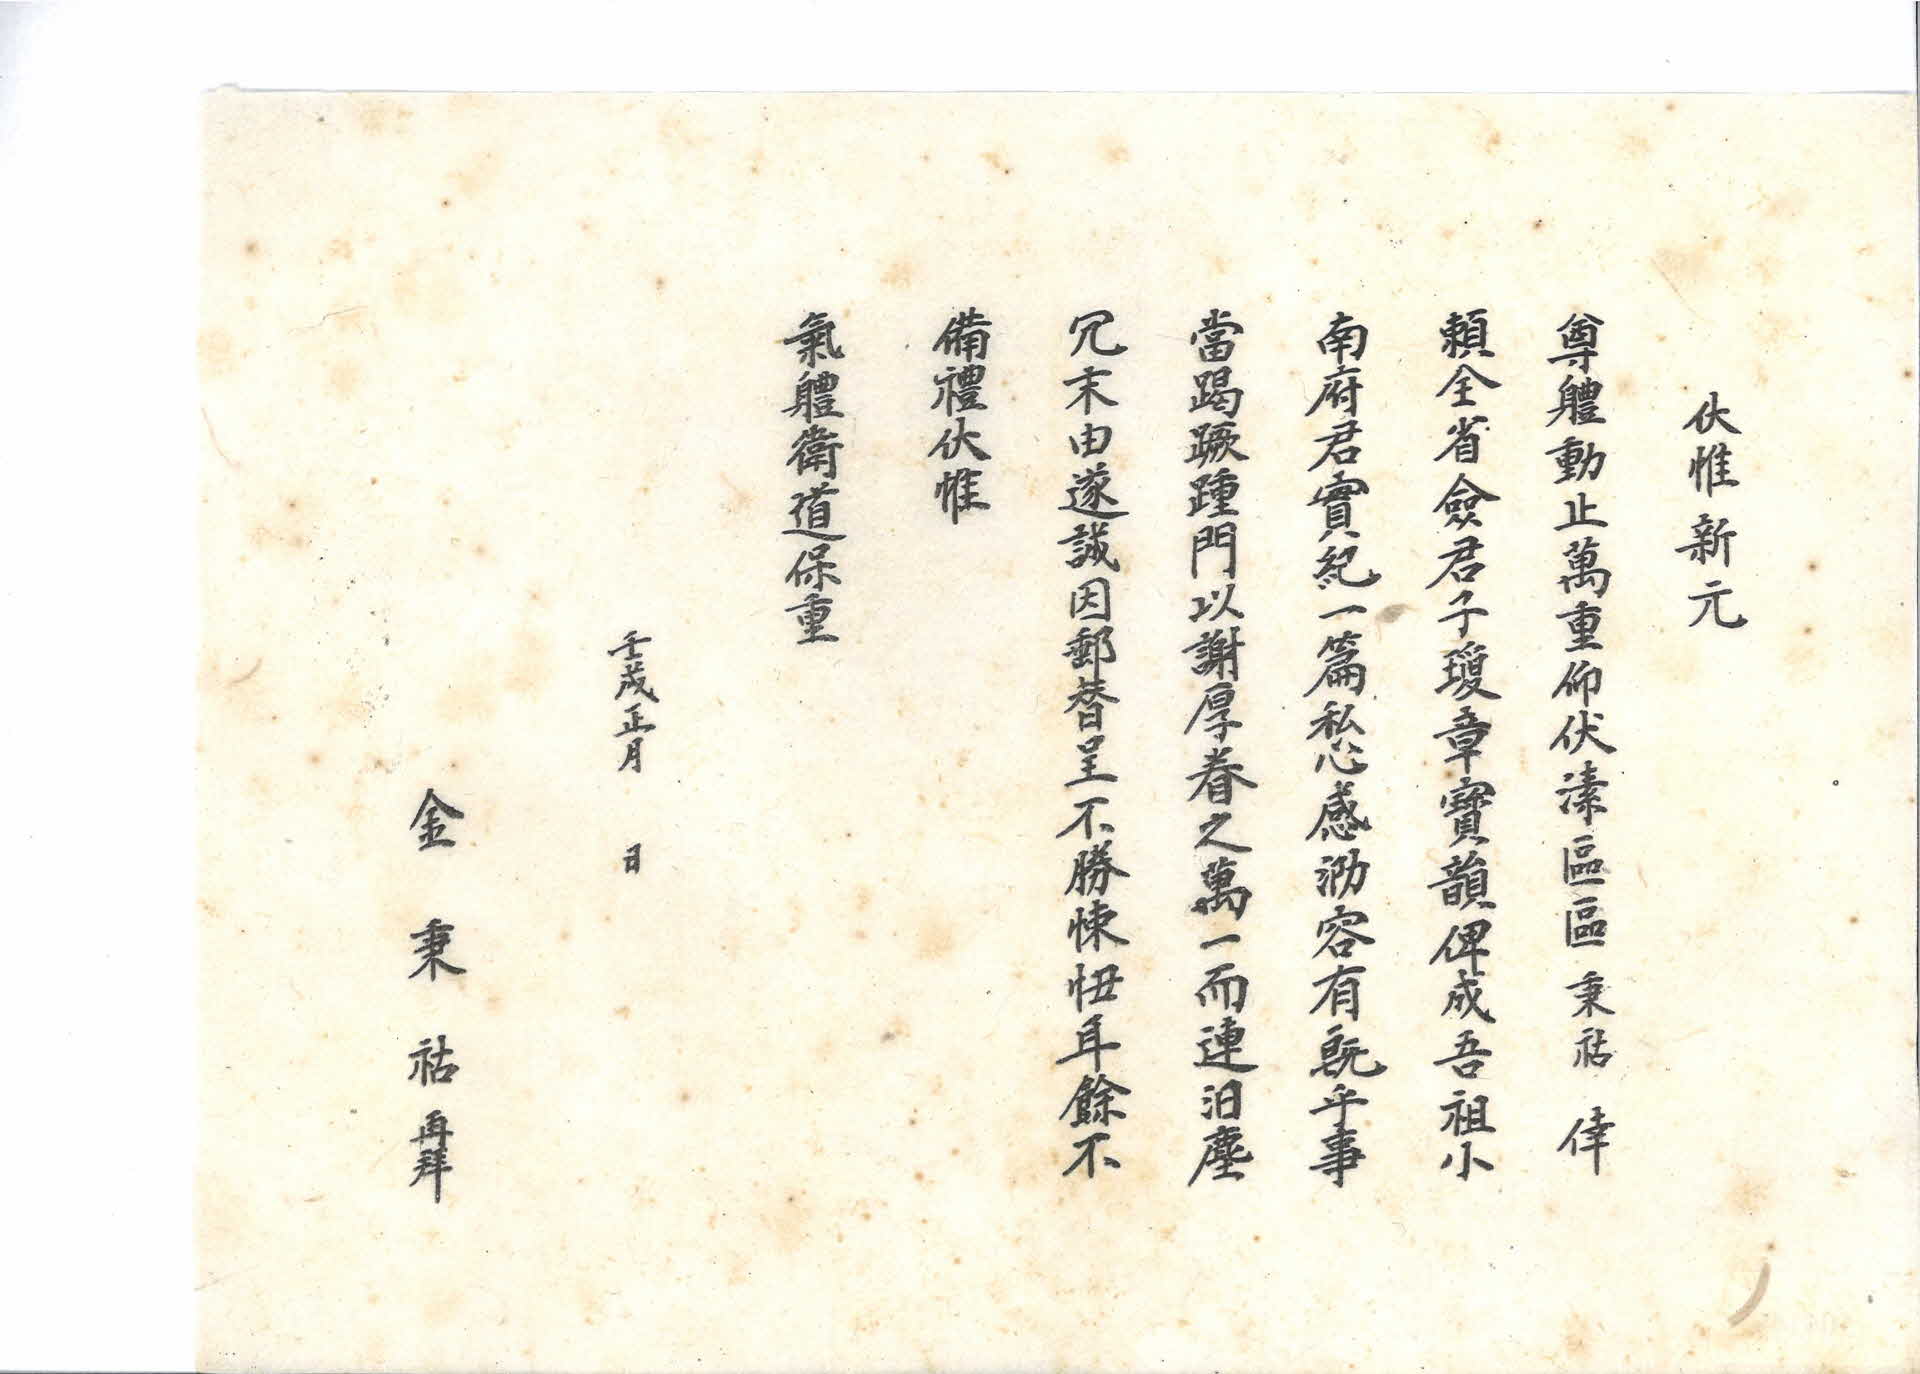 伏惟新元
尊體動止萬重仰伏溱區區秉祜倖
賴全省僉君子瓊章寶韻俾成吾祖小
南府君實紀一篇私心感泐容有旣乎事
當跼蹶踵門以謝厚眷之萬一而連汨塵
冗末由遂誠因郵替呈不勝悚忸耳餘不
備禮伏惟
氣體衛道保重
壬戌正月 日
金秉祜再拜